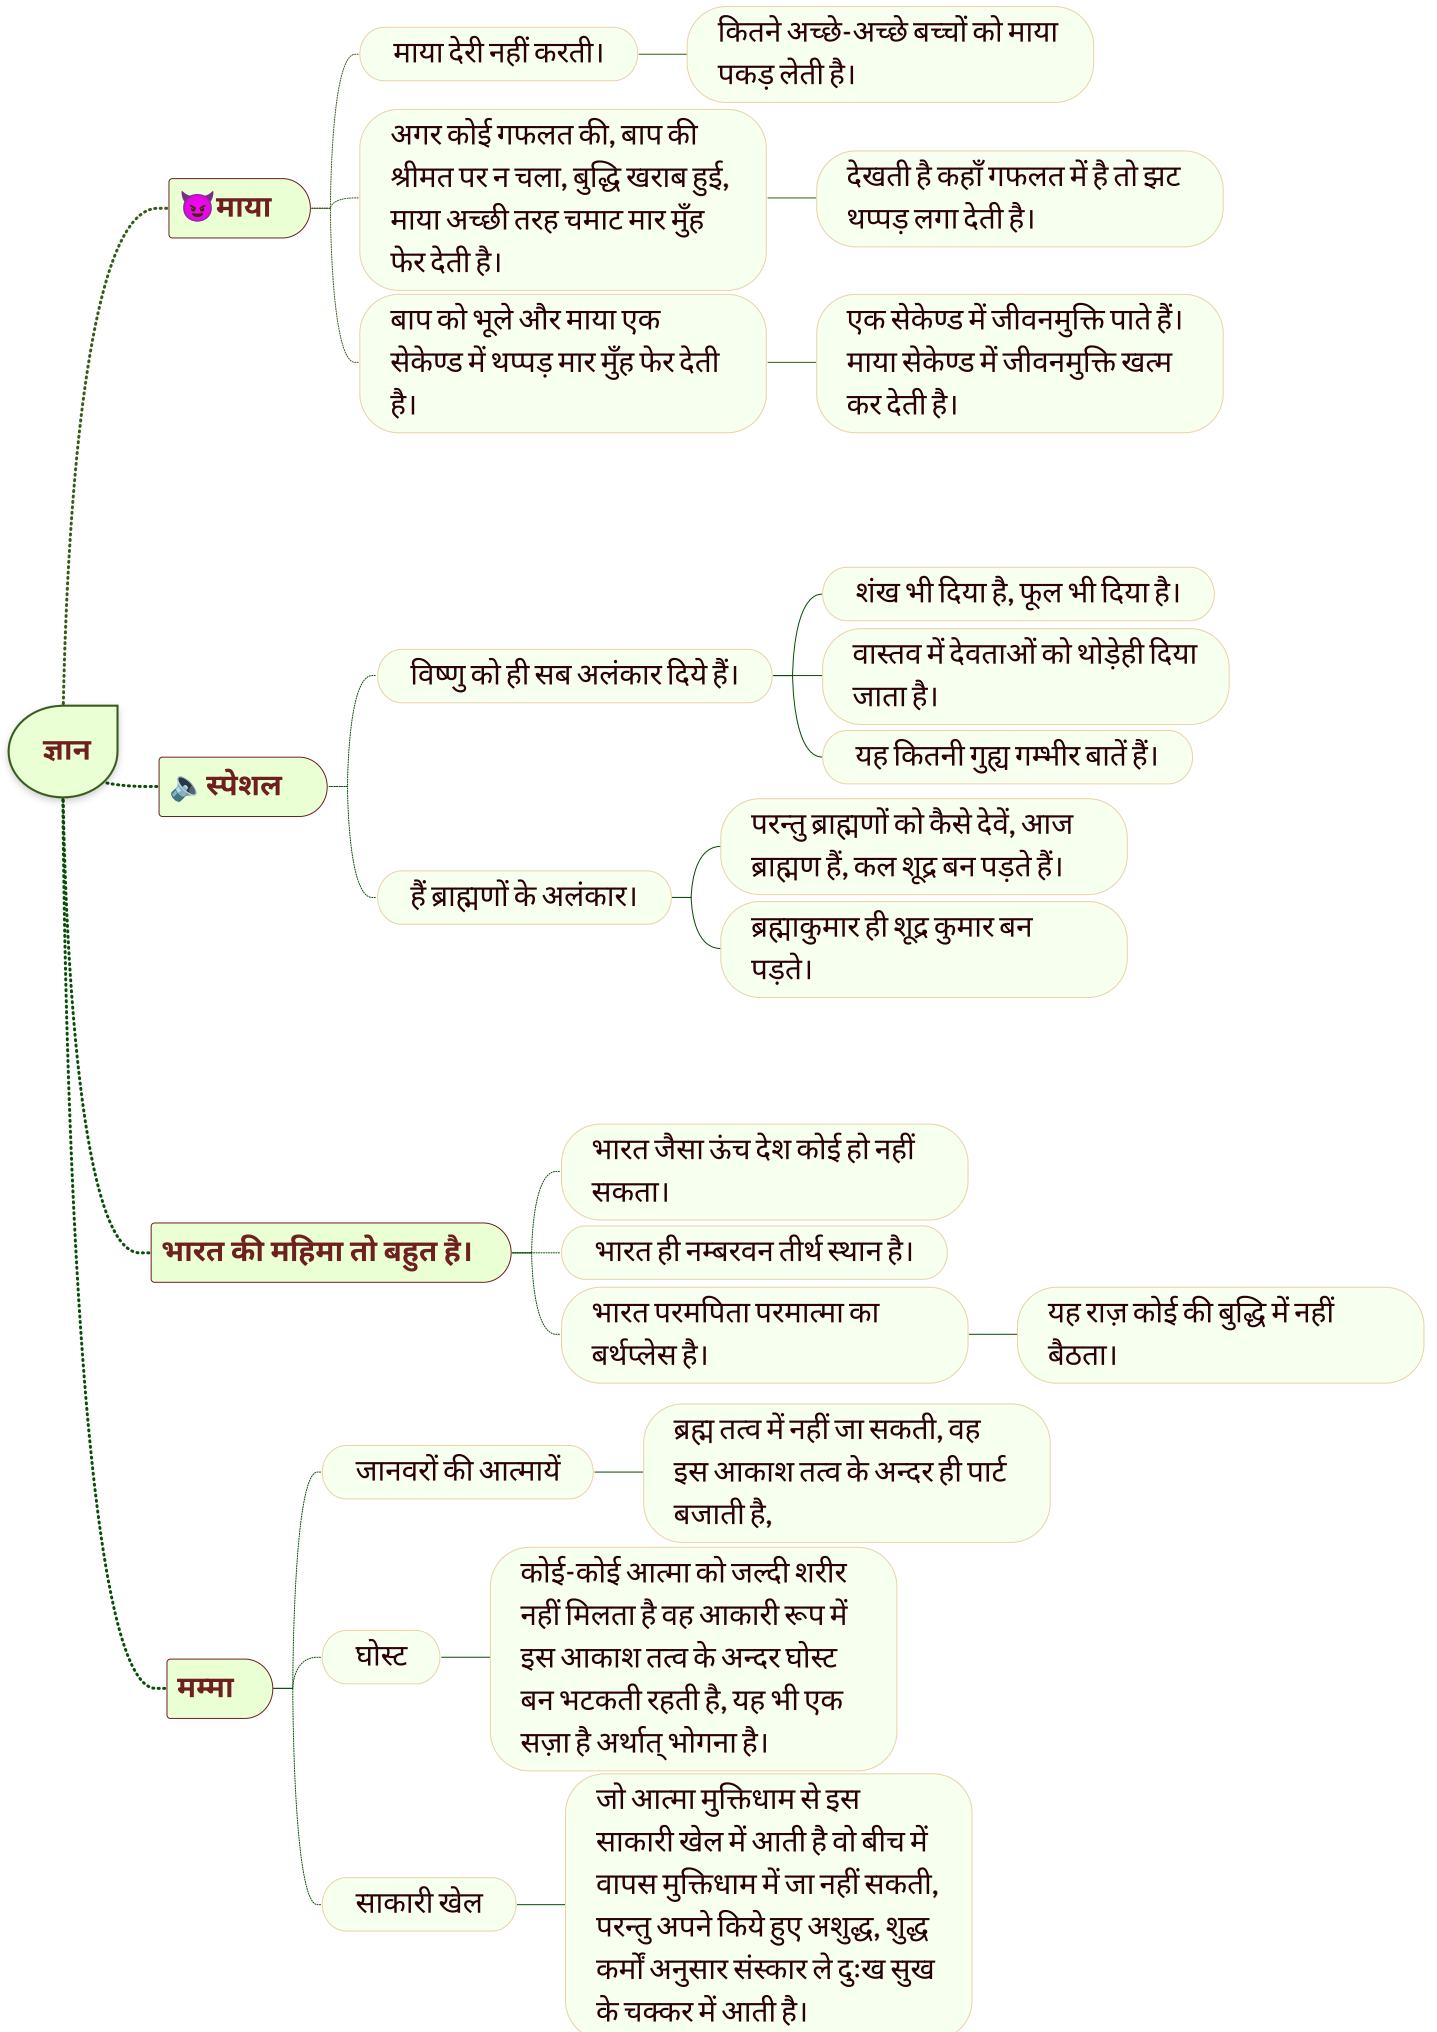 ज्ञान
😈माया
माया देरी नहीं करती।
कितने अच्छे-अच्छे बच्चों को माया
पकड़ लेती है।
अगर कोई गफलत की, बाप की
श्रीमत पर न चला, बुद्धि खराब हुई,
माया अच्छी तरह चमाट मार मुँह
फेर देती है।
देखती है कहाँ गफलत में है तो झट
थप्पड़ लगा देती है।
बाप को भूले और माया एक
सेकेण्ड में थप्पड़ मार मुँह फेर देती
है।
एक सेकेण्ड में जीवनमुक्ति पाते हैं।
माया सेकेण्ड में जीवनमुक्ति खत्म
कर देती है।
🔈 स्पेशल
विष्णु को ही सब अलंकार दिये हैं।
शंख भी दिया है, फूल भी दिया है।
वास्तव में देवताओं को थोड़ेही दिया
जाता है।
यह कितनी गुह्य गम्भीर बातें हैं।
हैं ब्राह्मणों के अलंकार।
परन्तु ब्राह्मणों को कैसे देवें, आज
ब्राह्मण हैं, कल शूद्र बन पड़ते हैं।
ब्रह्माकुमार ही शूद्र कुमार बन
पड़ते।
भारत की महिमा तो बहुत है।
भारत जैसा ऊंच देश कोई हो नहीं
सकता।
भारत ही नम्बरवन तीर्थ स्थान है।
भारत परमपिता परमात्मा का
बर्थप्लेस है।
यह राज़ कोई की बुद्धि में नहीं
बैठता।
मम्मा
जानवरों की आत्मायें
ब्रह्म तत्व में नहीं जा सकती, वह
इस आकाश तत्व के अन्दर ही पार्ट
बजाती है,
घोस्ट
कोई-कोई आत्मा को जल्दी शरीर
नहीं मिलता है वह आकारी रूप में
इस आकाश तत्व के अन्दर घोस्ट
बन भटकती रहती है, यह भी एक
सज़ा है अर्थात् भोगना है।
साकारी खेल
जो आत्मा मुक्तिधाम से इस
साकारी खेल में आती है वो बीच में
वापस मुक्तिधाम में जा नहीं सकती,
परन्तु अपने किये हुए अशुद्ध, शुद्ध
कर्मों अनुसार संस्कार ले दुःख सुख
के चक्कर में आती है।